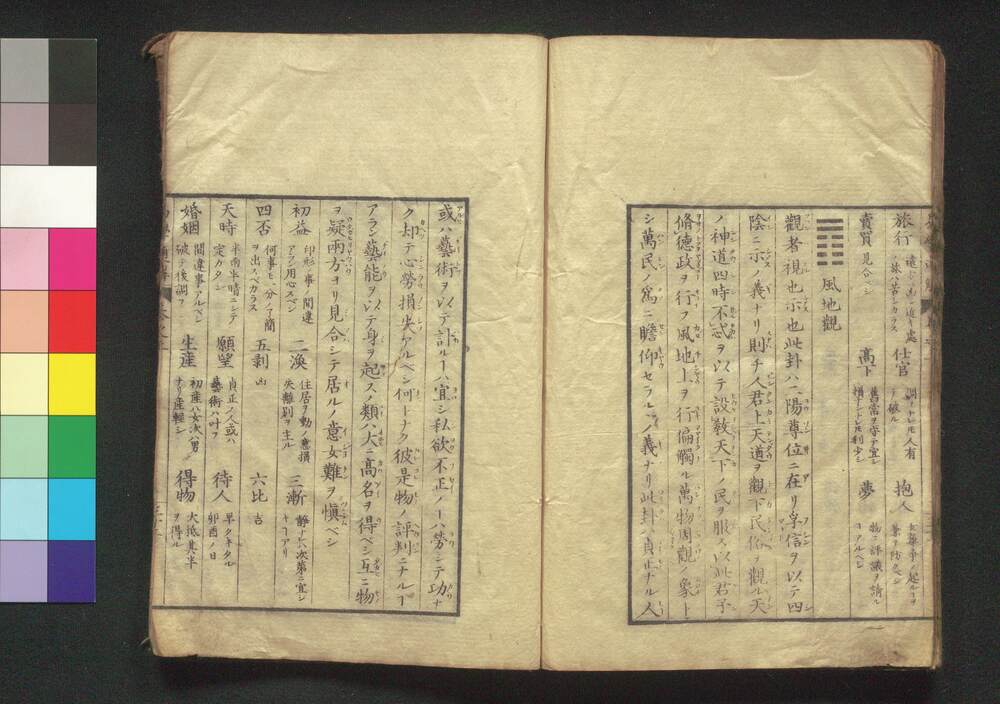 旅行
仕官
抱人
賣買 見合ベシ
高下
夢
風地觀
觀者視也示也此卦ハ二陽尊位ニ在リ孚信ヲ以テ四
陰ニ示ス義ナリ則チ人君上天道ヲ觀下民俗ヲ觀ル天
ノ神道四時不忒ヲ以テ設教天下ノ民ヲ服ス以此君子
脩德政ヲ行フ風地上ヲ行偏觸ル萬物周觀ノ象トシ
シ萬民ノ爲ニ瞻仰セラルヽノ義ナリ此卦ハ貞正ナル人
或ハ藝術ヲ以テ計ルーハ宜シ私欲不正ノーハ勞シテ功ナ
ク却テ心勞損失アルベシ何トナク彼是物ノ評判ニナルー
アラン藝能ヲ以テ身ヲ起スノ類ハ大ニ高名ヲ得ベシ互ニ物
ヲ疑両方ヨリ見合シテ居ルノ意女難ヲ愼ベシ
初益 印形ノ事ノ間違アラン用心スベシ
二渙 住居ヲ動ノ意損失離別ヲ主ル
三漸 靜ナレハ次第ニ宜シキコアリ
四否 何事モ一分ノ了簡ヲ出スベカラス
五剥 凶
六比 吉
天時 半雨半晴ニシテ定カタシ
願望 貞正ノ人或ハ藝術ハ叶フ
待人 早クキタル卯酉ノ日
婚姻 間違事アルベシ破テ後調フ
生産 初産ハ女次ハ男ナリ産軽シ
得物 大抵其半ヲ得ル